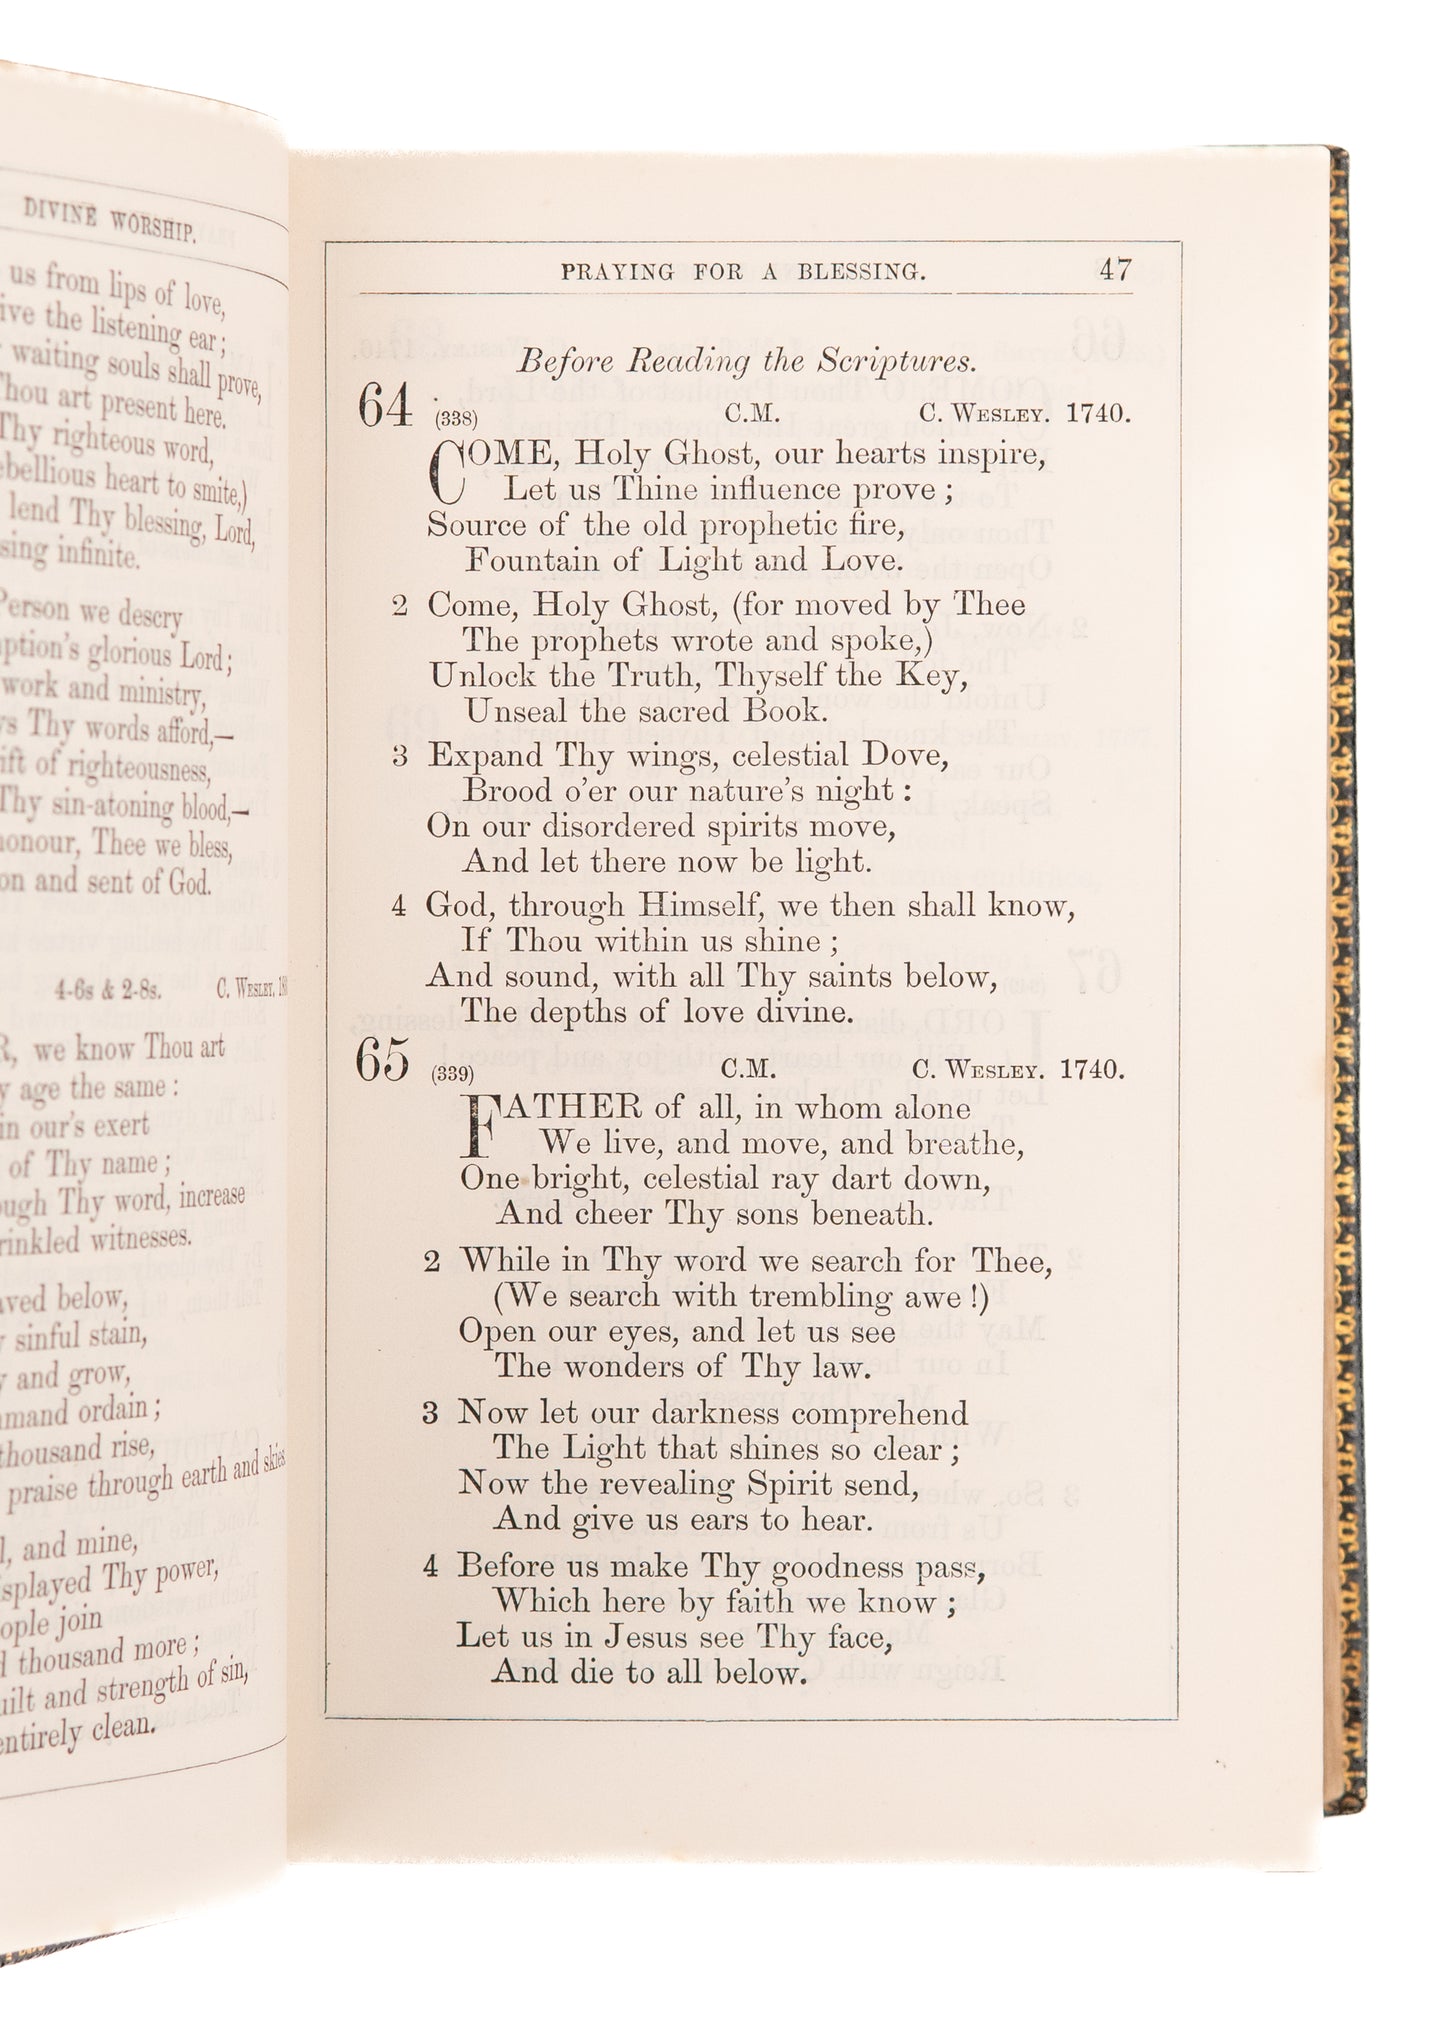 DIVINE WORSHIP.
us from lips of love,
the listening ear;
waiting souls shall prove,
Thou art present here.
Thy righteous word,
heart to smite,)
lend Thy blessing, Lord,
infinite.
Person we descry
glorious Lord;
work and ministry,
Thy words afford,—
of righteousness,
Thy sin-atoning blood,—
honour, Thee we bless,
and sent of God.
4-6s & 2-8s. C. WESLEY.
we know Thou art
age the same:
in our's exert
of Thy name;
Thy word, increase
witnesses.
below,
sinful stain,
and grow,
ordain;
thousand rise,
praise through earth and skies
and mine,
Thy power,
join
thousand more;
and strength of sin,
entirely clean.
PRAYING FOR A BLESSING. 47
Before Reading the Scriptures.
64 (338) C.M. C. WESLEY. 1740.
COME, Holy Ghost, our hearts inspire,
Let us Thine influence prove;
Source of the old prophetic fire,
Fountain of Light and Love.
2 Come, Holy Ghost, (for moved by Thee
The prophets wrote and spoke,)
Unlock the Truth, Thyself the Key,
Unseal the sacred Book.
3 Expand Thy wings, celestial Dove,
Brood o'er our nature's night:
On our disordered spirits move,
And let there now be light.
4 God, through Himself, we then shall know,
If Thou within us shine;
And sound, with all Thy saints below,
The depths of love divine.
65 (339) C.M. C. WESLEY. 1740.
FATHER of all, in whom alone
We live, and move, and breathe,
One bright, celestial ray dart down,
And cheer Thy sons beneath.
2 While in Thy word we search for Thee,
(We search with trembling awe!)
Open our eyes, and let us see
The wonders of Thy law.
3 Now let our darkness comprehend
The Light that shines so clear;
Now the revealing Spirit send,
And give us ears to hear.
4 Before us make Thy goodness pass,
Which here by faith we know;
Let us in Jesus see Thy face,
And die to all below.